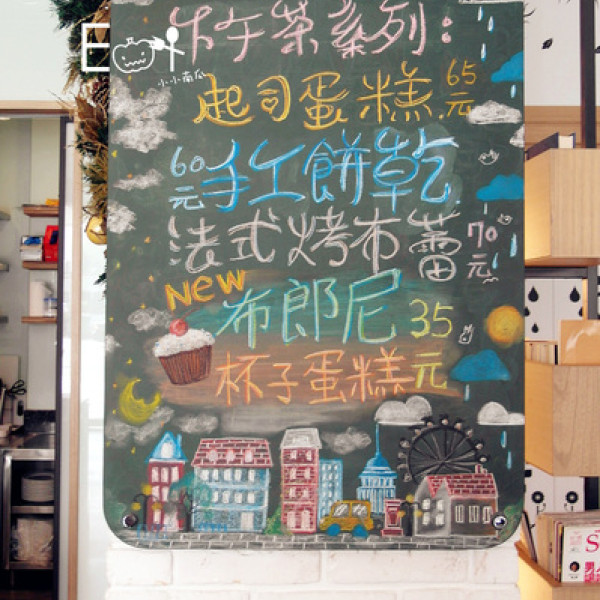 下午茶系列:
小小南瓜
起司蛋糕 65元
60元 手工餅乾
法式烤布蕾 70元
NEW
布郎尼
杯子蛋糕 35元
S
男